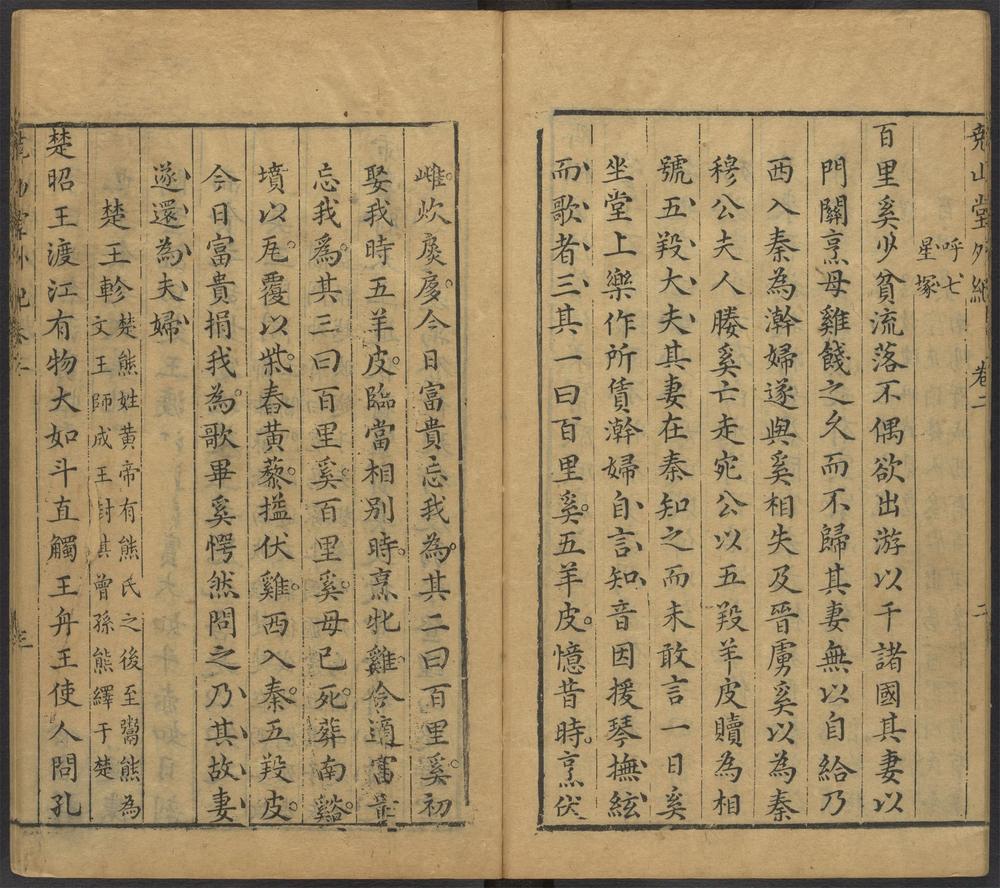 堯山堂外紀 卷二 二
呼七
星塚
百里奚少貧流落不偶欲出游以干諸國其妻以
門關烹母雞餞之久而不歸其妻無以自給乃
西入秦為澣婦遂與奚相失及晉虜奚以為秦
穆公夫人媵奚亡走宛公以五羖羊皮贖為相
號五羖大夫其妻在秦知之而未敢言一日奚
坐堂上樂作所賃澣婦自言知音因援琴撫絃
而歌者三其一曰百里奚五羊皮憶昔時烹伏
雌炊扊扅今日富貴忘我為其二曰百里奚初
娶我時五羊皮臨當相別時烹牝雞今適富貴
忘我為其三曰百里奚百里奚母已死葬南谿
墳以瓦覆以柴舂黃藜搤伏雞西入秦五羖皮
今日富貴捐我為歌畢奚愕然問之乃其故妻
遂還為夫婦
楚王軫楚熊姓黃帝有熊氏之後至鬻熊為
文王師成王封其曾孫熊繹于楚
楚昭王渡江有物大如斗直觸王舟王使人問孔